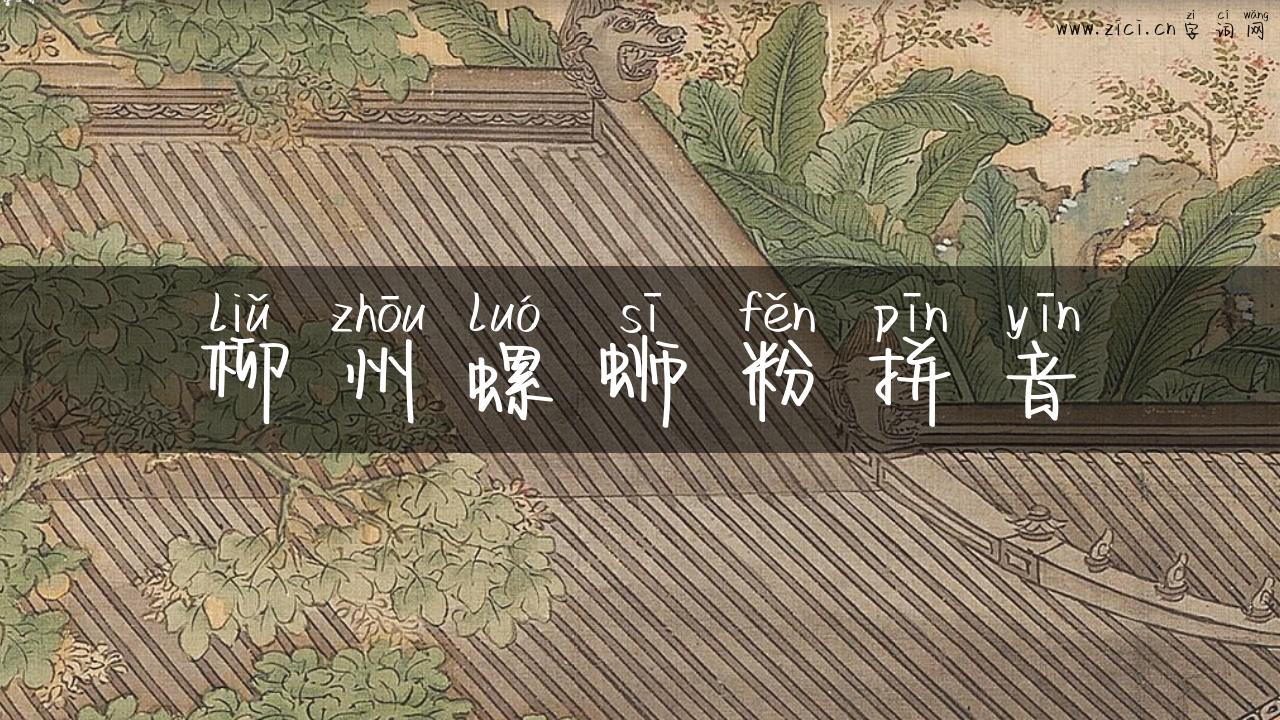 zì cí wǎng
www.zici.cn 字词网
liǔ zhōu luó sī fěn pīn yīn
柳州螺蛳粉拼音